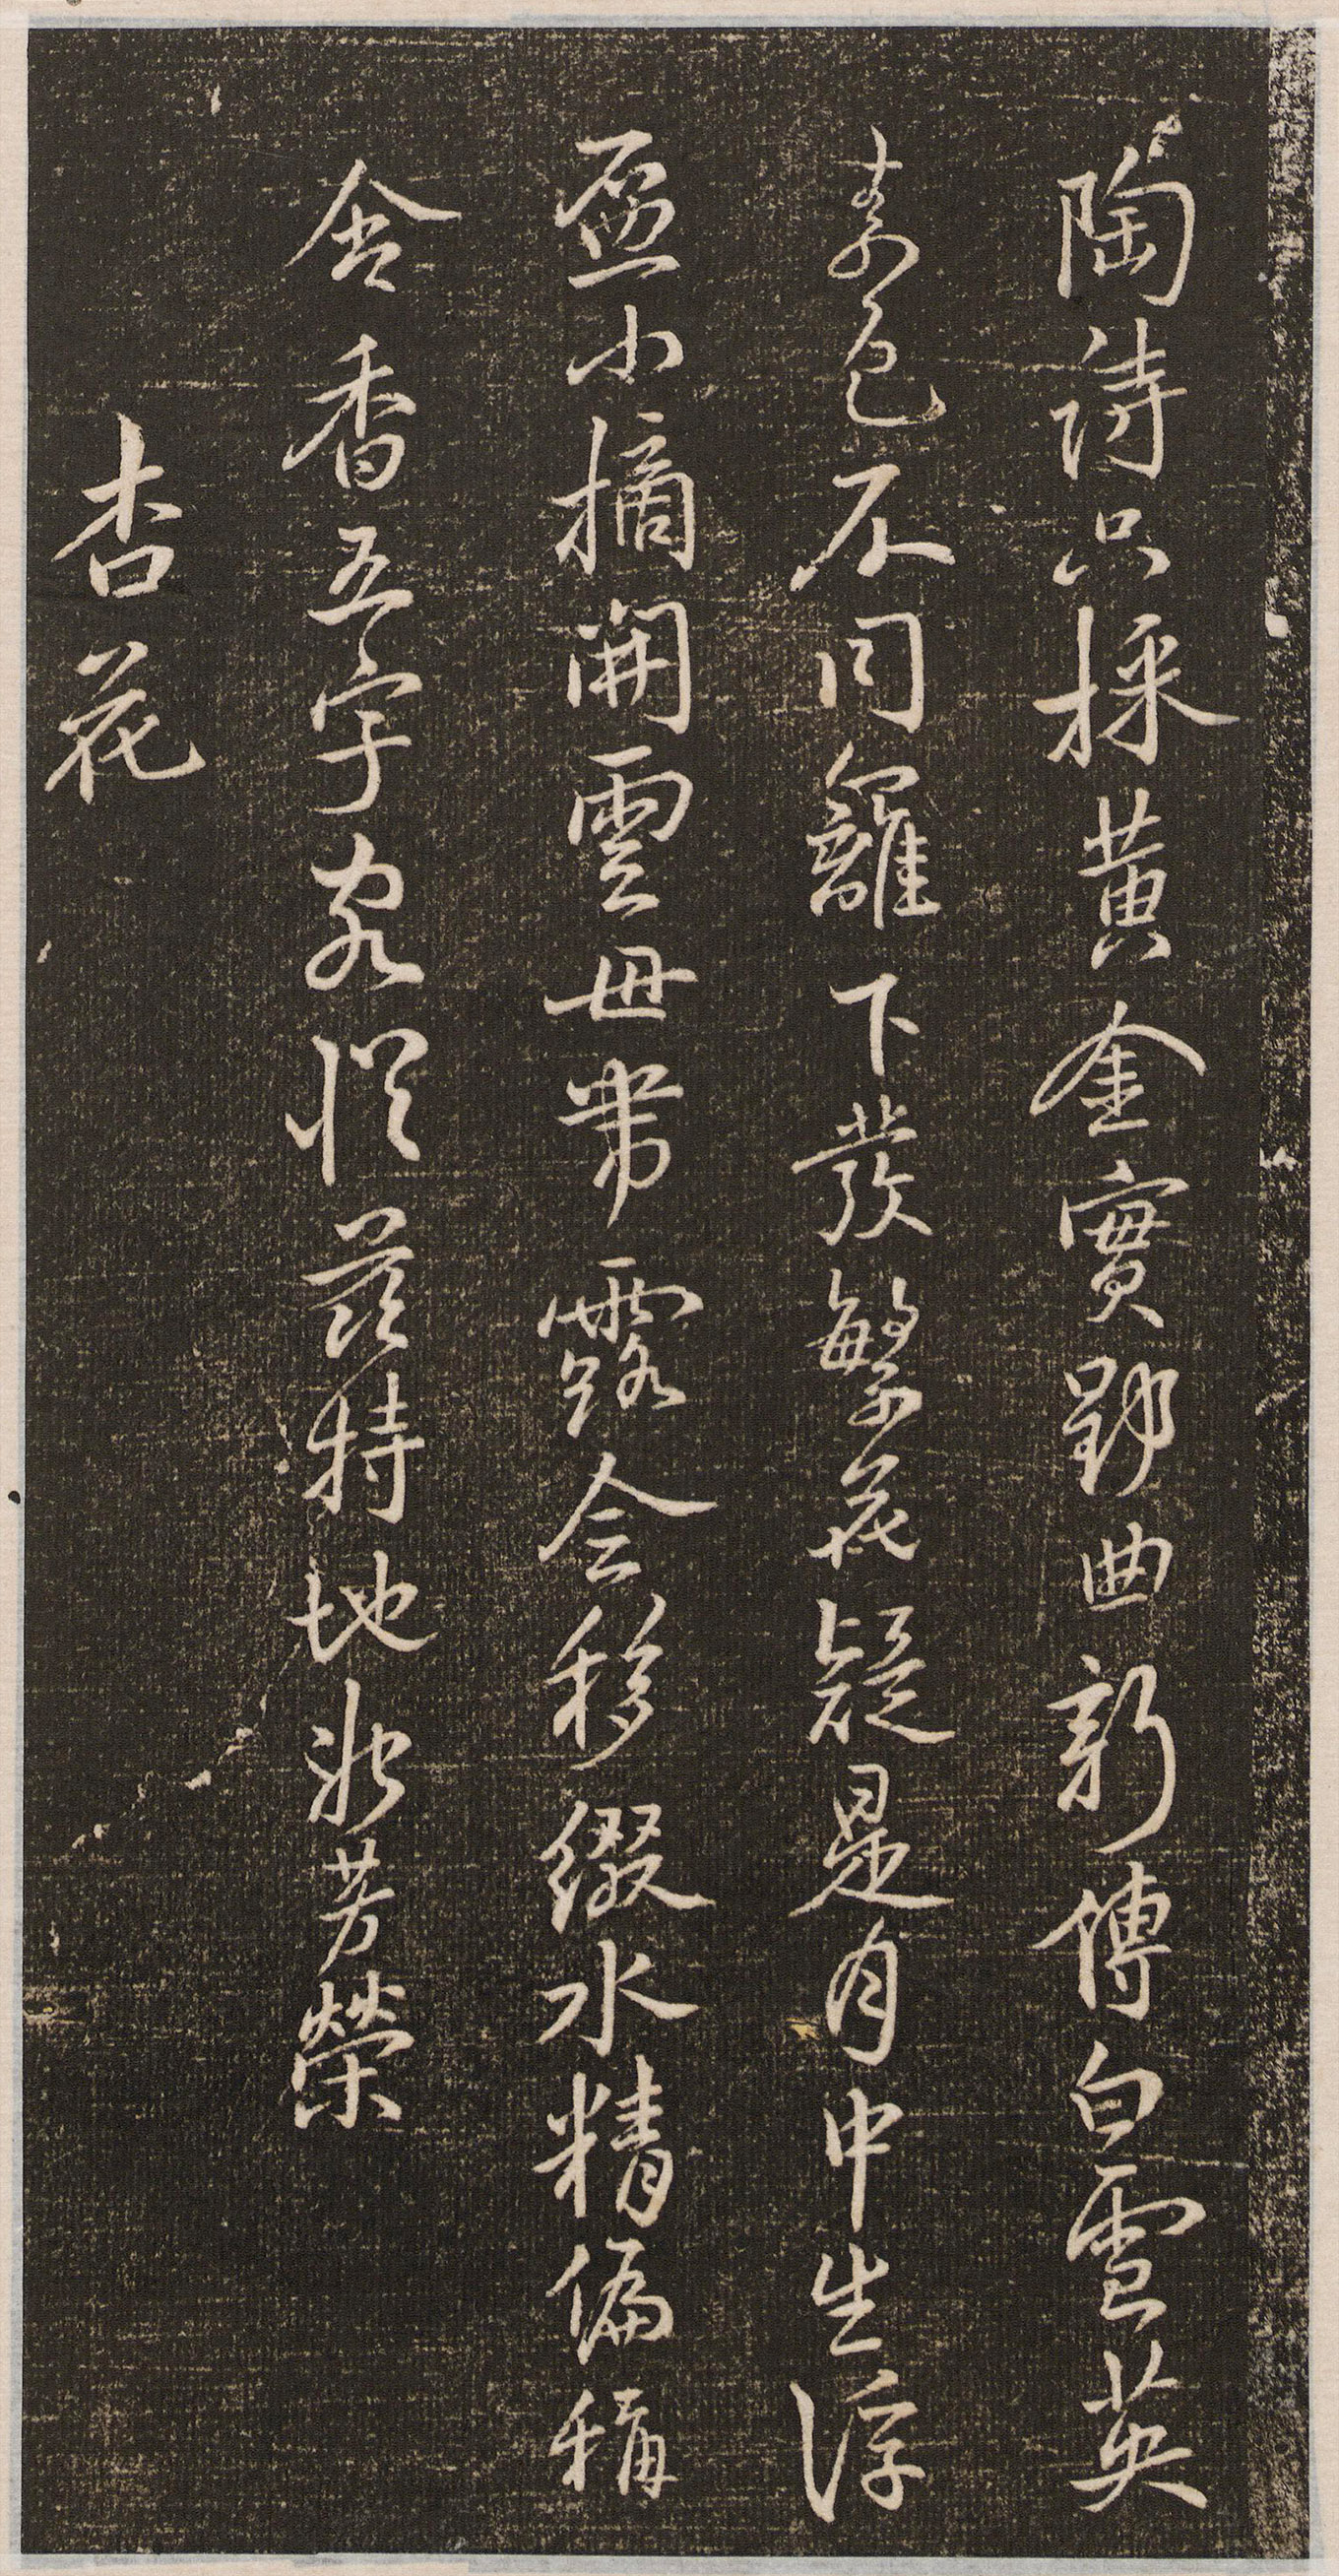 陶詩只採黃金實郢曲新傳白雪英
素色不同籬下發繁花疑是月中生浮
盃小摘開雲母帶露全移綴水精偏稱
含香五字客從茲特地始芳榮
杏花